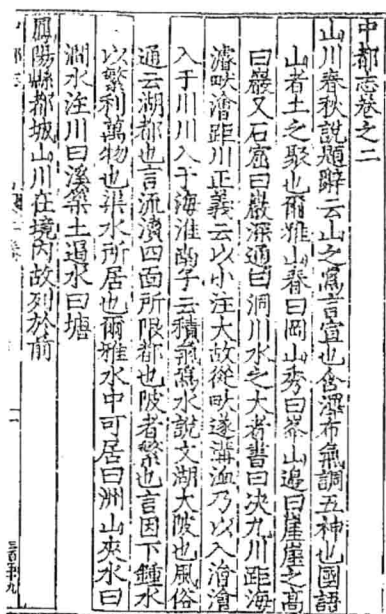 中都志卷之二
山川春秋說題辭云山之爲言宣也含澤布氣調五神也國語
山者土之聚也爾雅山脊曰岡山秀曰峯山邊曰崖崖之高
曰巖又石窟曰巖深通曰洞川水之大者書曰决九川距海
濬畎澮距川正義云以小注大故從畎遂溝洫乃以入澮澮
入于川川入于海淮南子云積氣爲水說文湖大陂也風俗
通云湖都也言流瀆四面所隈都也陂者繁也言因下鍾水
以繁利萬物也渠水所居也爾雅水中可居曰洲山夾水曰
澗水注川曰溪築土遏水曰塘
鳳陽縣都城山川在境內故列於前